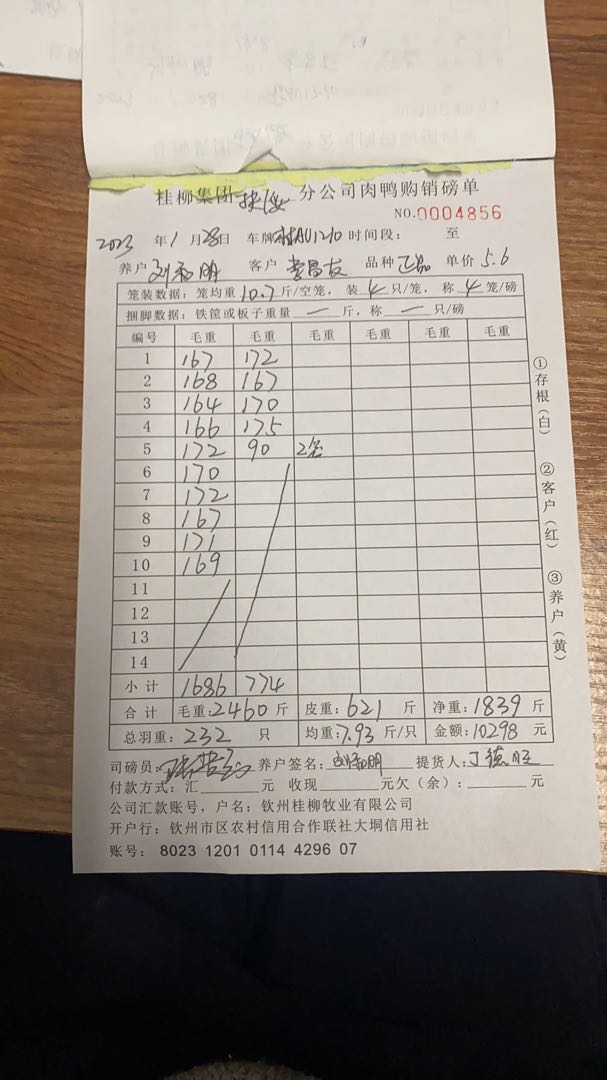 桂柳集团 扶绥 分公司肉鸭购销磅单
NO.0004856
2023 年 1 月 28日 车牌 AU1210 时间段: 至
养户 刘 明 客户 李昌友 品种 正品 单价 5.6
笼装数据: 笼均重 10.7 斤/空笼, 装 4 只/笼, 称 4 笼/磅
捆脚数据: 铁筐或板子重量 — 斤, 称 — 只/磅
编号 毛重 毛重 毛重 毛重 毛重 毛重
1 167 172
2 168 167
3 164 170
4 166 175
5 172 90 2笼
6 170
7 172
8 167
9 171
10 169
11
12
13
14
小计 1686 774
合计 毛重:2460 斤 皮重:621 斤 净重:1839 斤
总羽重: 232 只 均重:7.93 斤/只 金额:10298 元
司磅员: 养户签名: 刘 明 提货人: 丁德旺
付款方式: 汇 元 收现 元欠(余): 元
公司汇款账号, 户名: 钦州桂柳牧业有限公司
开户行: 钦州市区农村信用合作联社大垌信用社
账号: 8023 1201 0114 4296 07
①存根(白)
②客户(红)
③养户(黄)